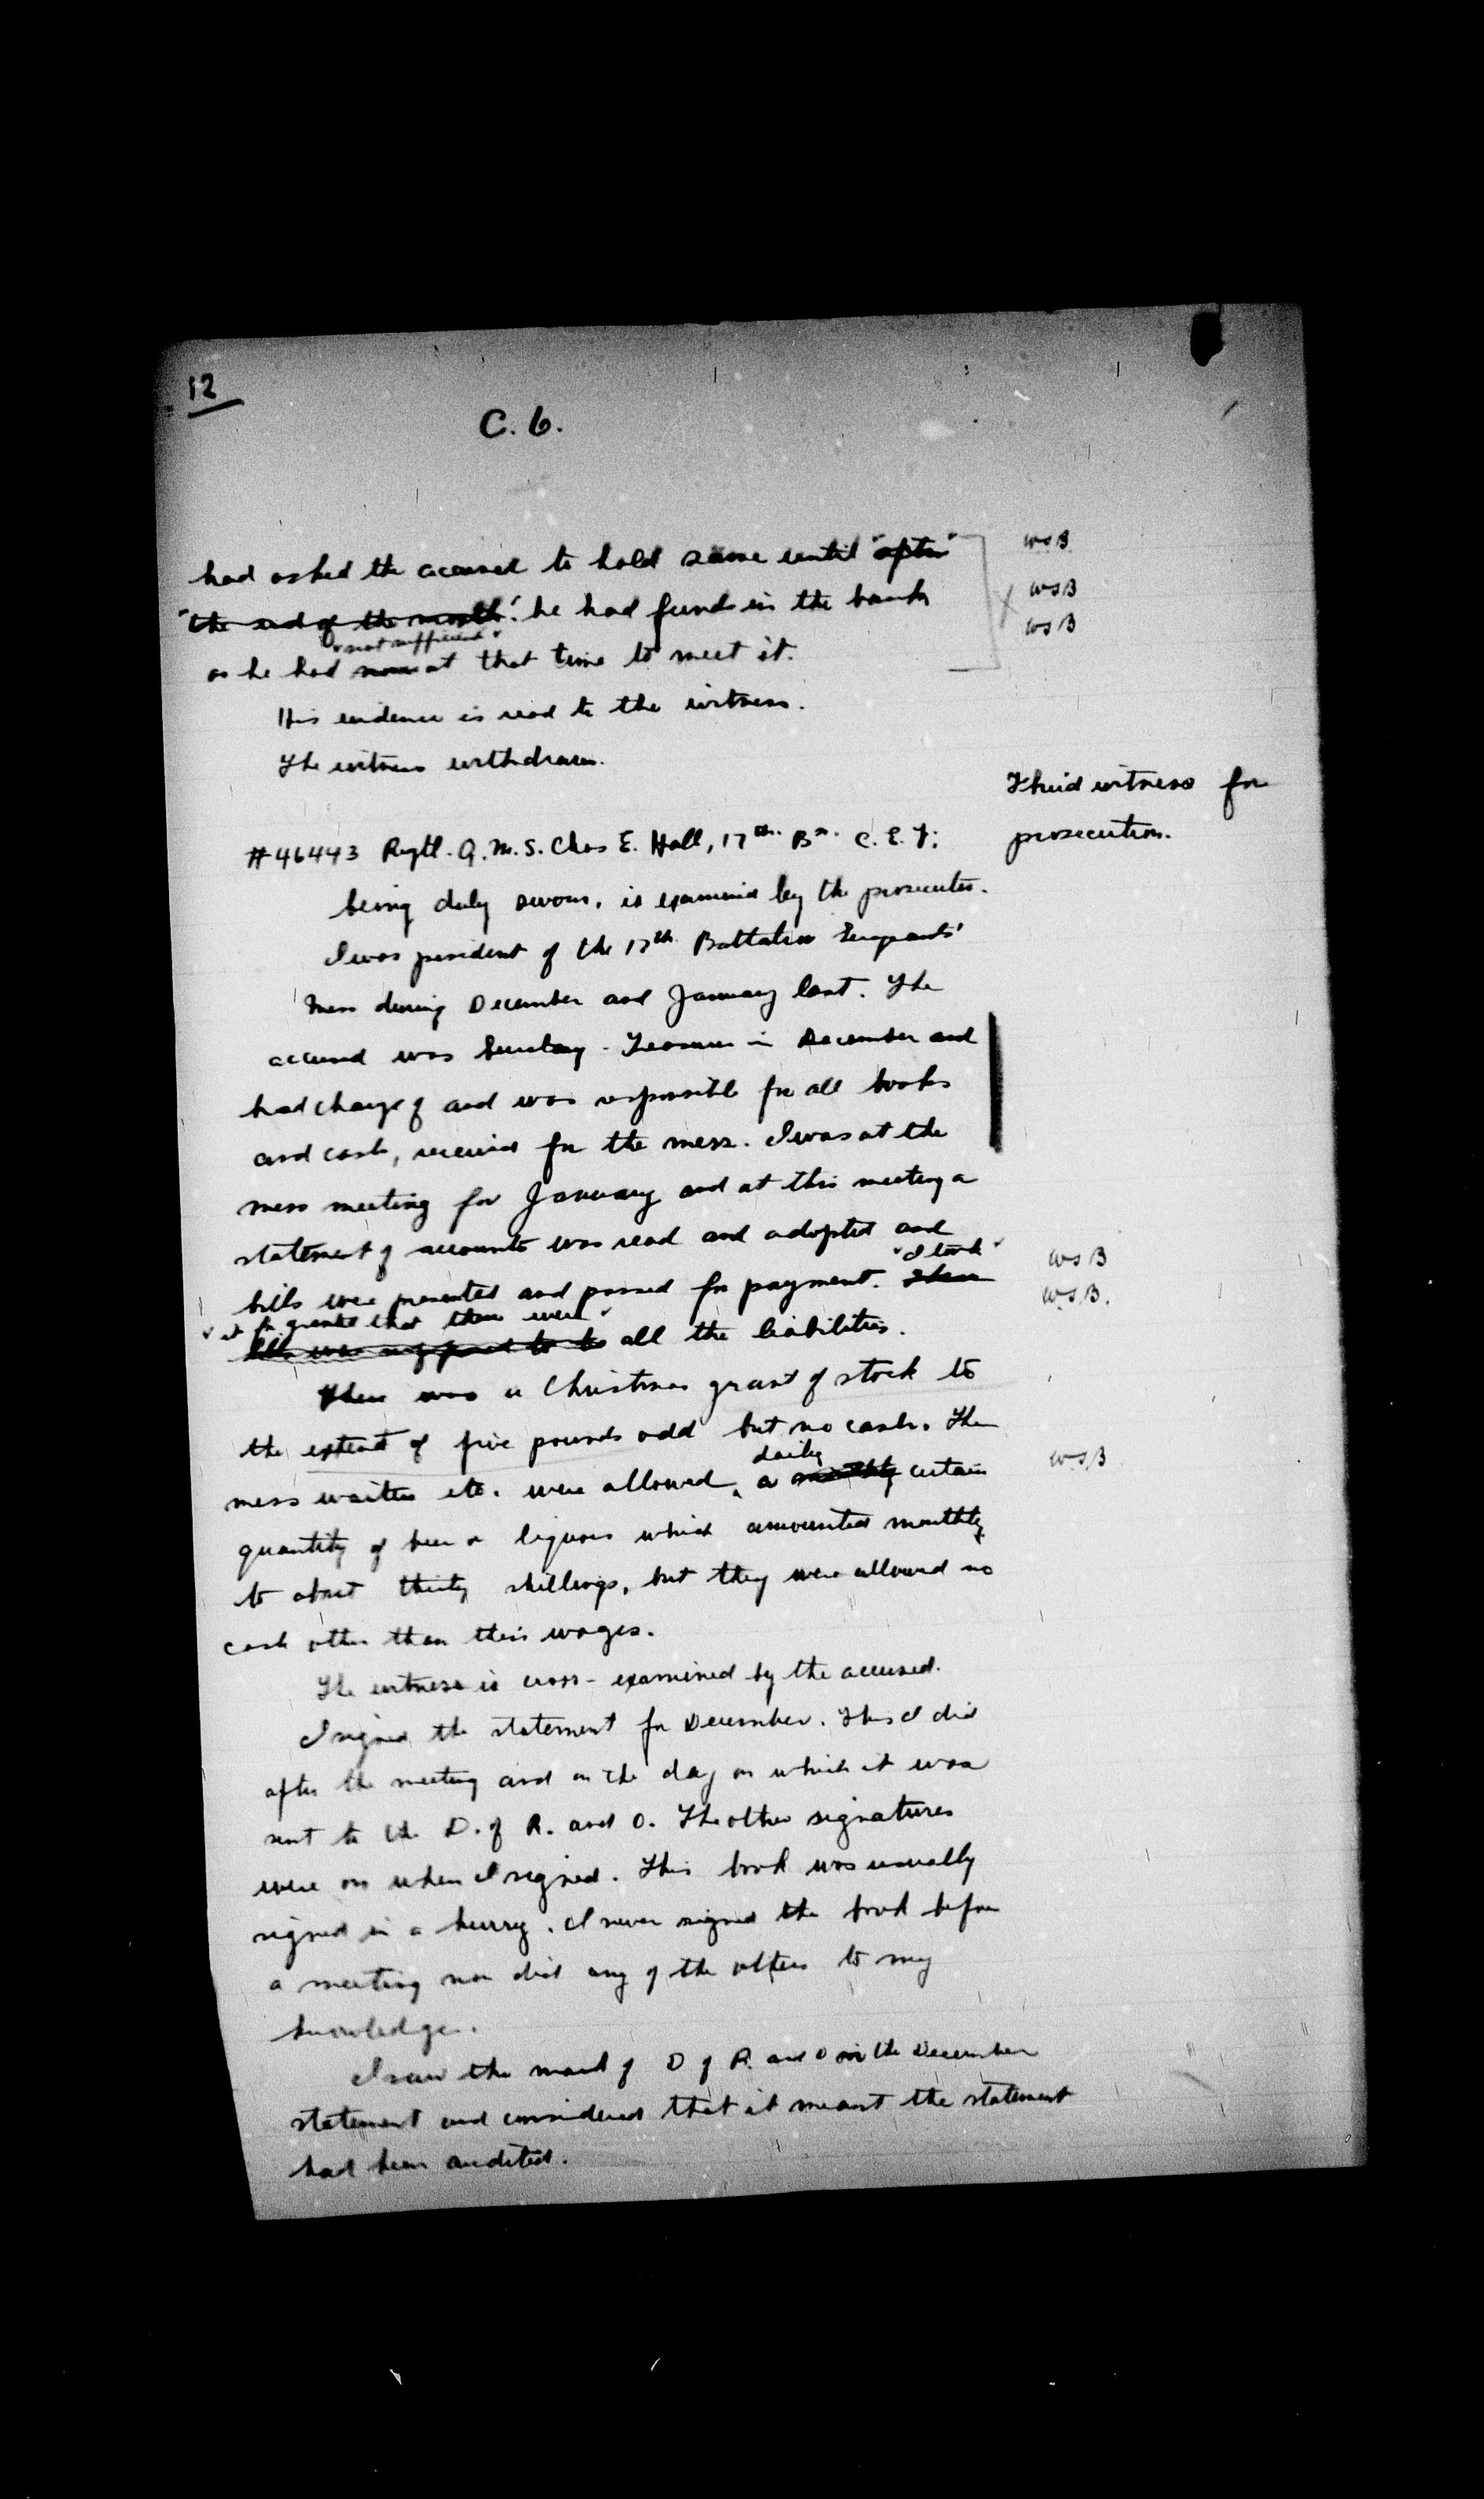 12
C. 6.
had asked the accused to hold same until "after" WSB
"the end of the month". he had funds in the bank WSB
"not sufficient" WSB
as he had none at that time to meet it.
His evidence is read to the witness.
The witness withdraws.
Third witness for
prosecution.
#46443 Regtl. Q.M.S. Chas E. Hall, 17th Bn. C.E.F.
being duly sworn, is examined by the prosecutor.
I was president of the 17th Battalion Sergeants'
Mess during December and January last. The
accused was Secretary-Treasurer in December and
had charge of and was responsible for all books
and cash, received for the mess. I was at the
mess meeting for January and at this meeting a
statement of accounts was read and adopted and
"I took" WSB
bills were presented and passed for payment. These WSB.
"it for granted that these were"
bills were supposed to be all the liabilities.
There was a Christmas grant of stock to
the extent of five pounds odd but no cash. The
daily
mess waiters etc. were allowed, a monthly certain WSB
quantity of beer or liquors which amounted monthly
to about thirty shillings, but they were allowed no
cash other than their wages.
The witness is cross-examined by the accused.
I signed the statement for December. This I did
after the meeting and on the day on which it was
sent to the D. of R. and O. The other signatures
were on when I signed. This book was usually
signed in a hurry. I never signed the book before
a meeting nor did any of the others to my
knowledge.
I saw the mark of D of R. and O on the December
statement and considered that it meant the statement
had been audited.